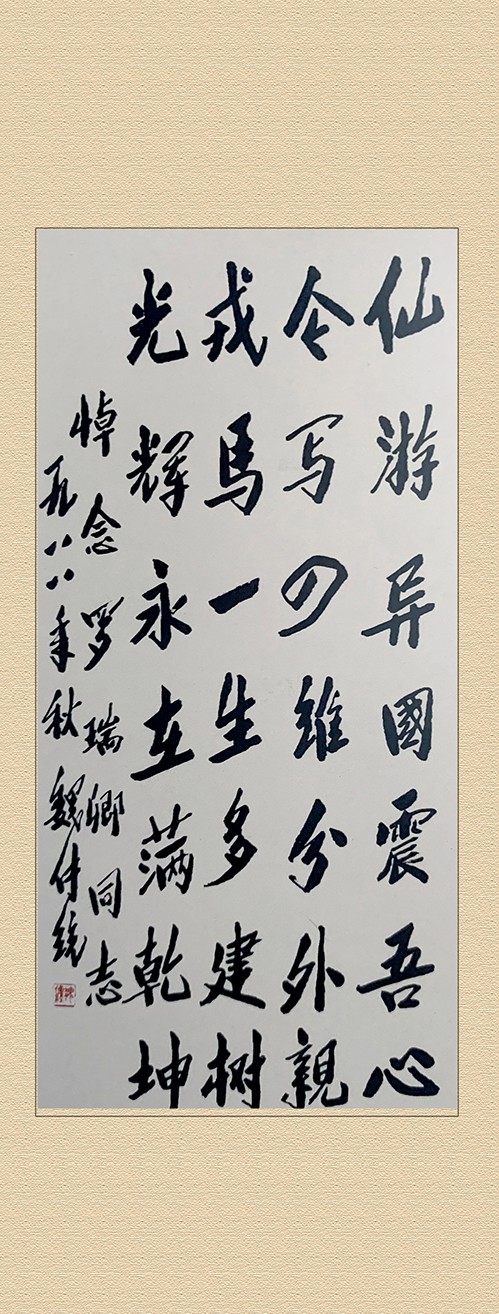 仙游异國震吾心
今写四维分外親
戎馬一生多建树
光輝永在满乾坤
悼念罗瑞卿同志
一九八八年秋魏传统